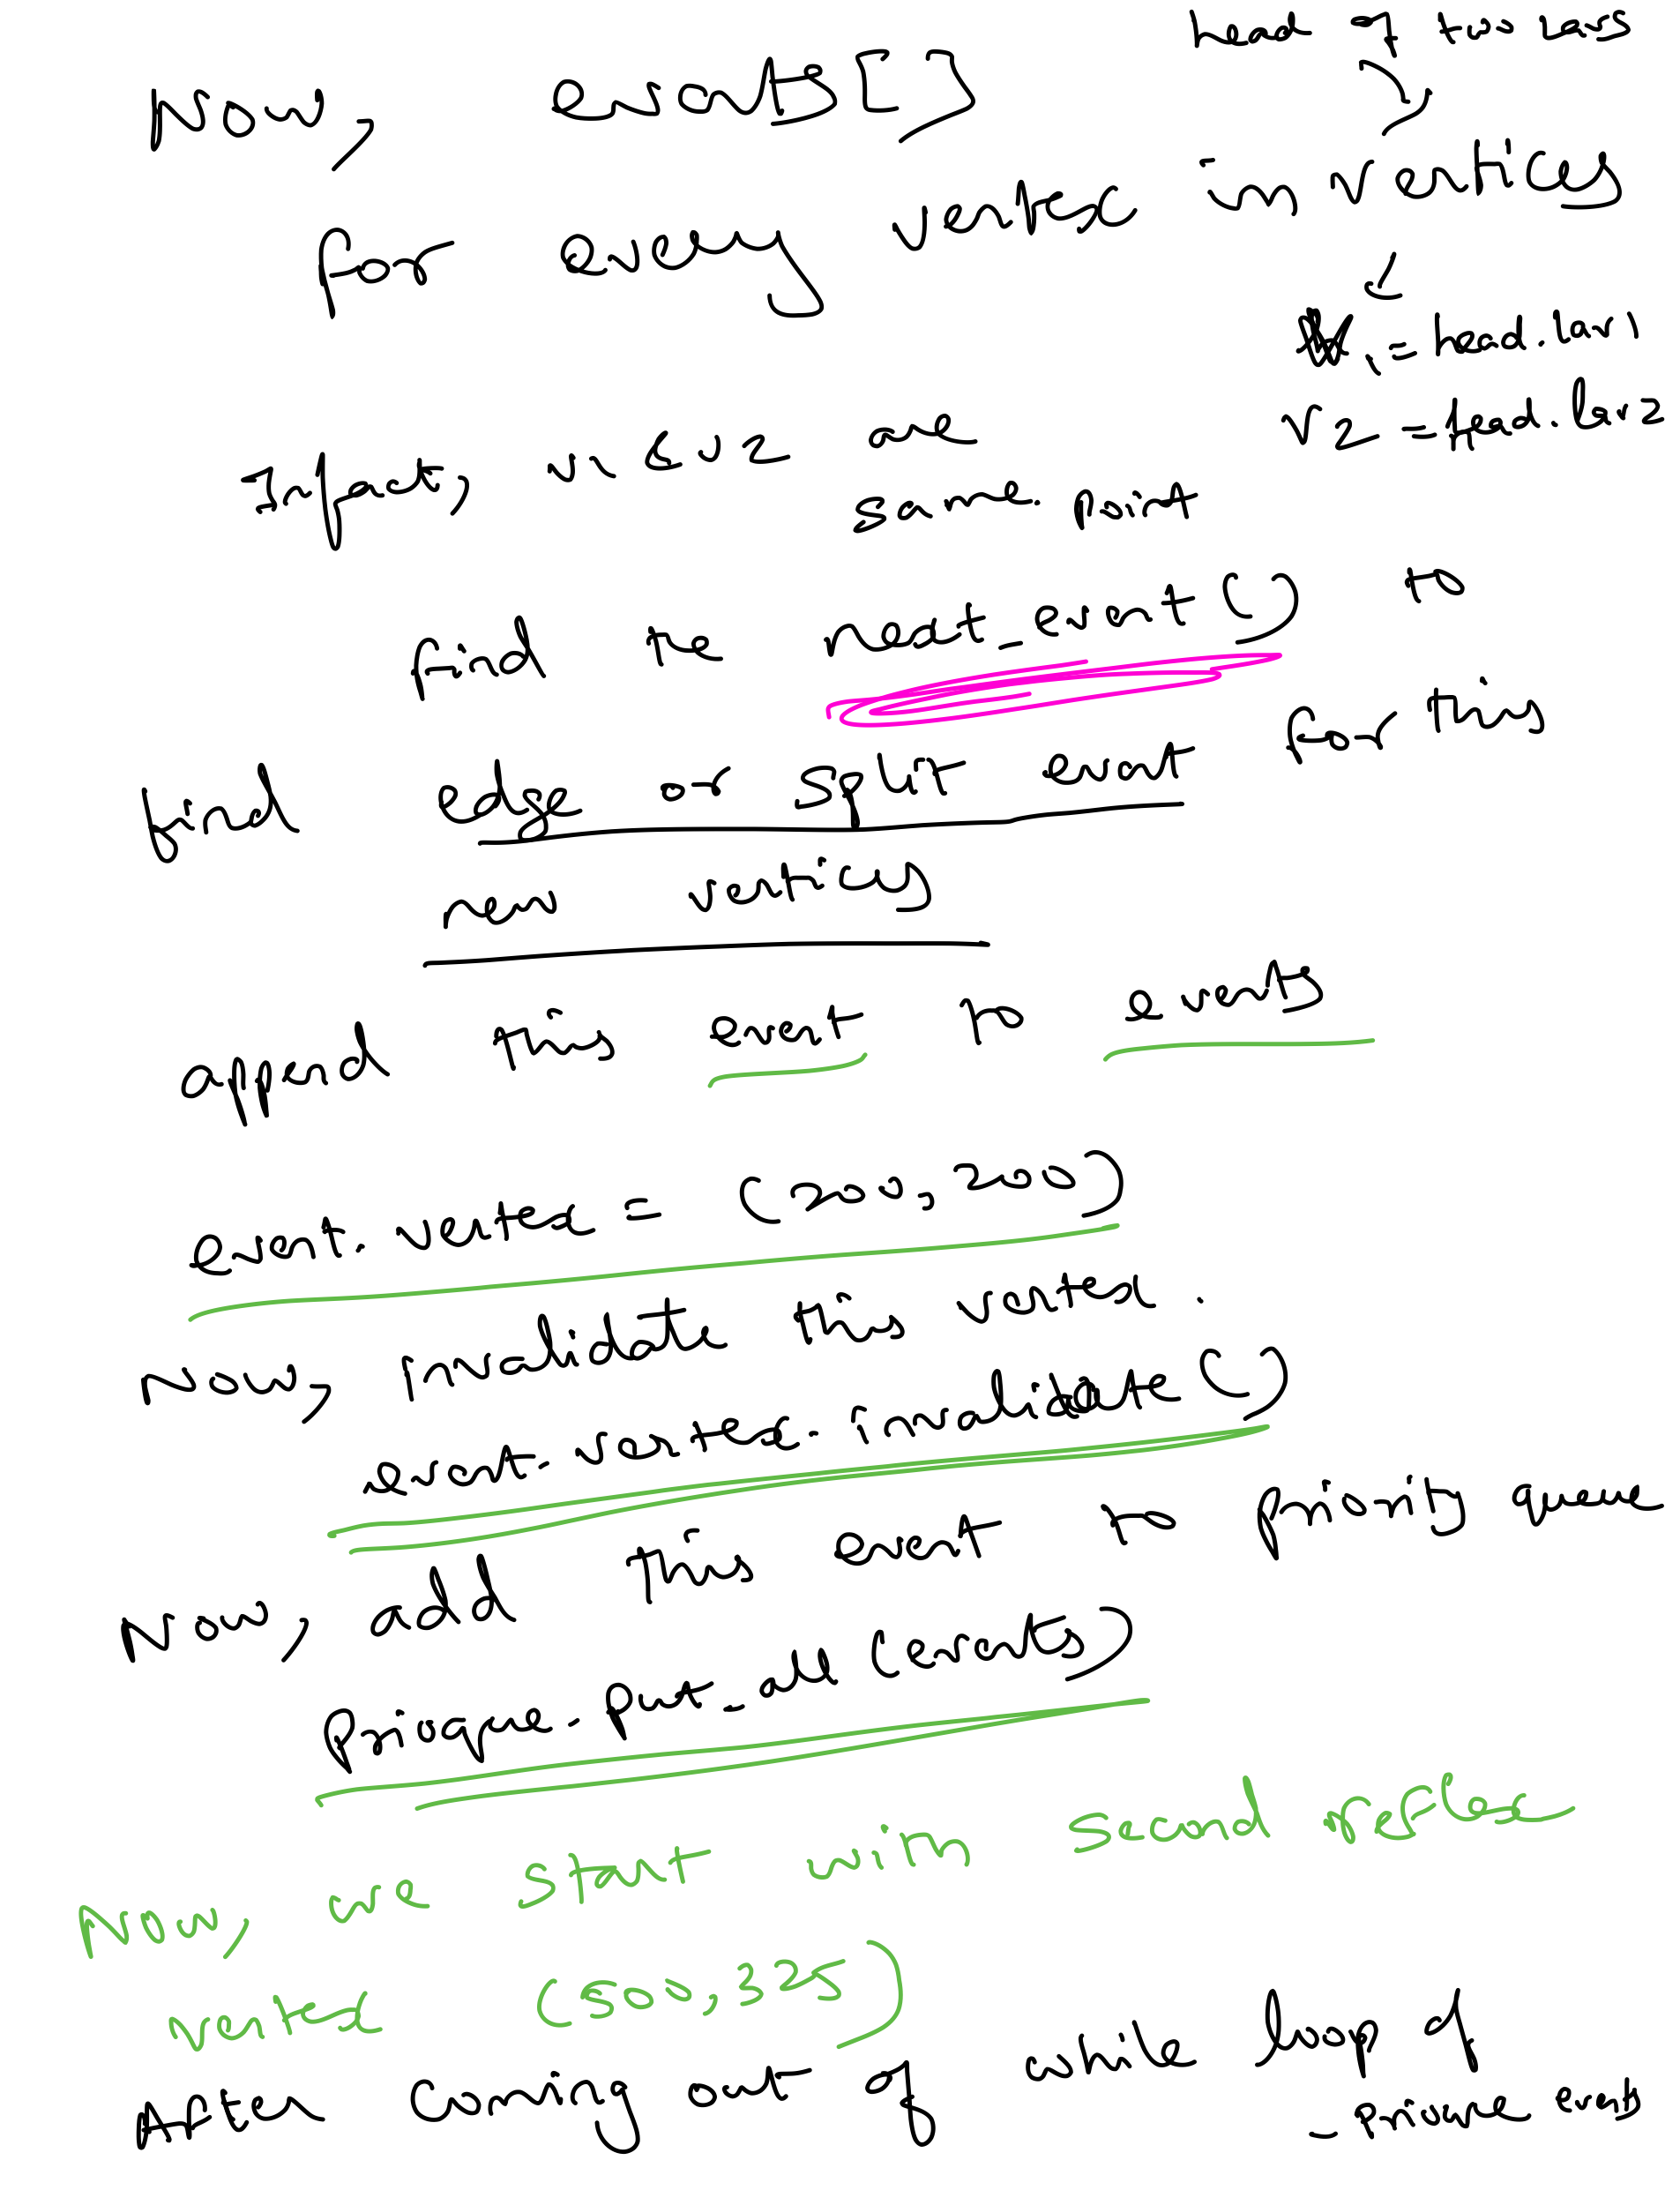 head of two lavs
Now, events[]
for every vertex in vertices
v1 = head.lav1
v2 = head.lav2
Infact, v1 & v2 are
same point
find the next_event() to
find edge or split event for this
new vertices
append this event to events
event.vertex = (200,200)
Now, invalidate this vertex.
event.vertex.invalidate()
Now, add this event to priority queue
prioque.put_all(events)
Now, we start with second reflex
vertex (500,325)
After coming out of while loop of